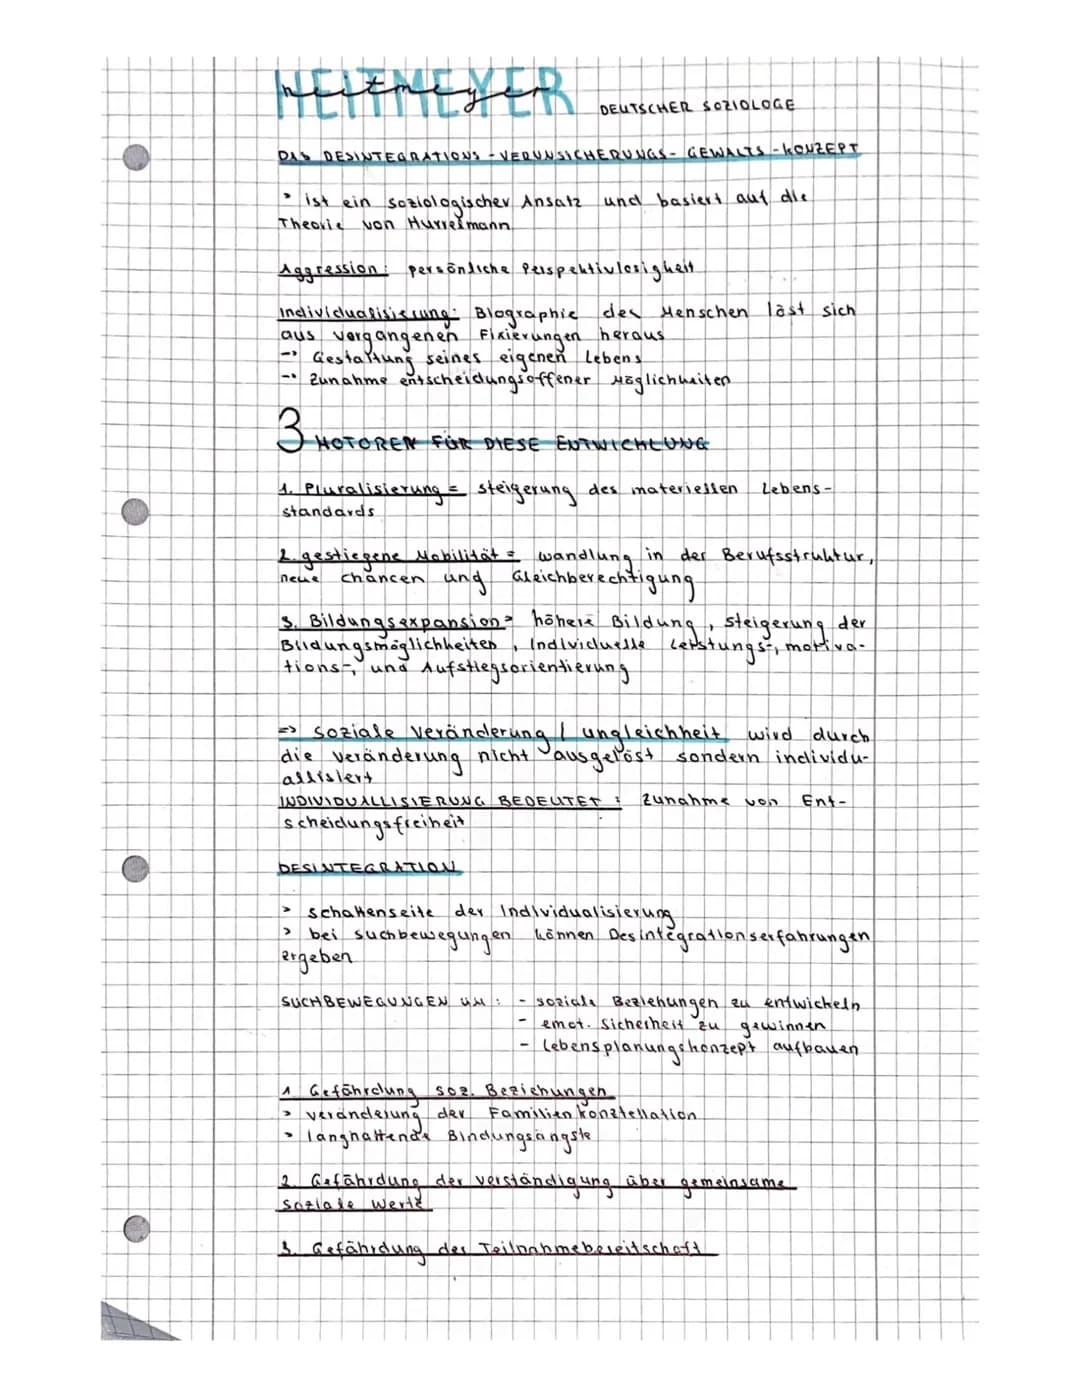 HEITMEYER
heitmeyer
DEUTSCHER SOZIOLOGE
DAS DESINTEGRATIONS-VERUNSICHERUNGS-GEWALTS-KONZEPT
> ist ein soziologischer Ansatz und basiert auf die
Theorie von Hurrelmann
Aggression: persönliche Perspektivlosigkeit
Individualisierung: Biographie des Menschen läst sich
aus vergangenen Fixierungen heraus
-> Gestaltung seines eigenen Lebens
-> Zunahme entscheidungsoffener Möglichkeiten
3 MOTOREN FÜR DIESE ENTWICKLUNG
1. Pluralisierung = steigerung des materiellen Lebens-
standards
2. gestiegene Mobilität = wandlung in der Berufsstruktur,
neue Chancen und Gleichberechtigung
3. Bildungsexpansion = höhere Bildung, steigerung der
Bildungsmöglichkeiten, Individuelle Leistungs-, motiva-
tions-, und Aufstiegsorientierung
=> soziale Veränderung / ungleichheit wird durch
die veränderung nicht ausgelöst sondern individu-
allisiert
INDIVIDUALLISIERUNG BEDEUTET: Zunahme von Ent-
scheidungsfreiheit
DESINTEGRATION
> schattenseite der Individualisierung
> bei suchbewegungen können Desintegrationserfahrungen
ergeben
SUCHBEWEGUNGEN um: - soziale Beziehungen zu entwickeln
- emot. Sicherheit zu gewinnen
- Lebensplanungskonzept aufbauen
1 Gefährdung soz. Beziehungen
> veränderung der Familienkonstellation
> langhattende Bindungsängste
2. Gefährdung der verständigung über gemeinsame
soziale Werte
3. Gefährdung der Teilnahmebereitschaft